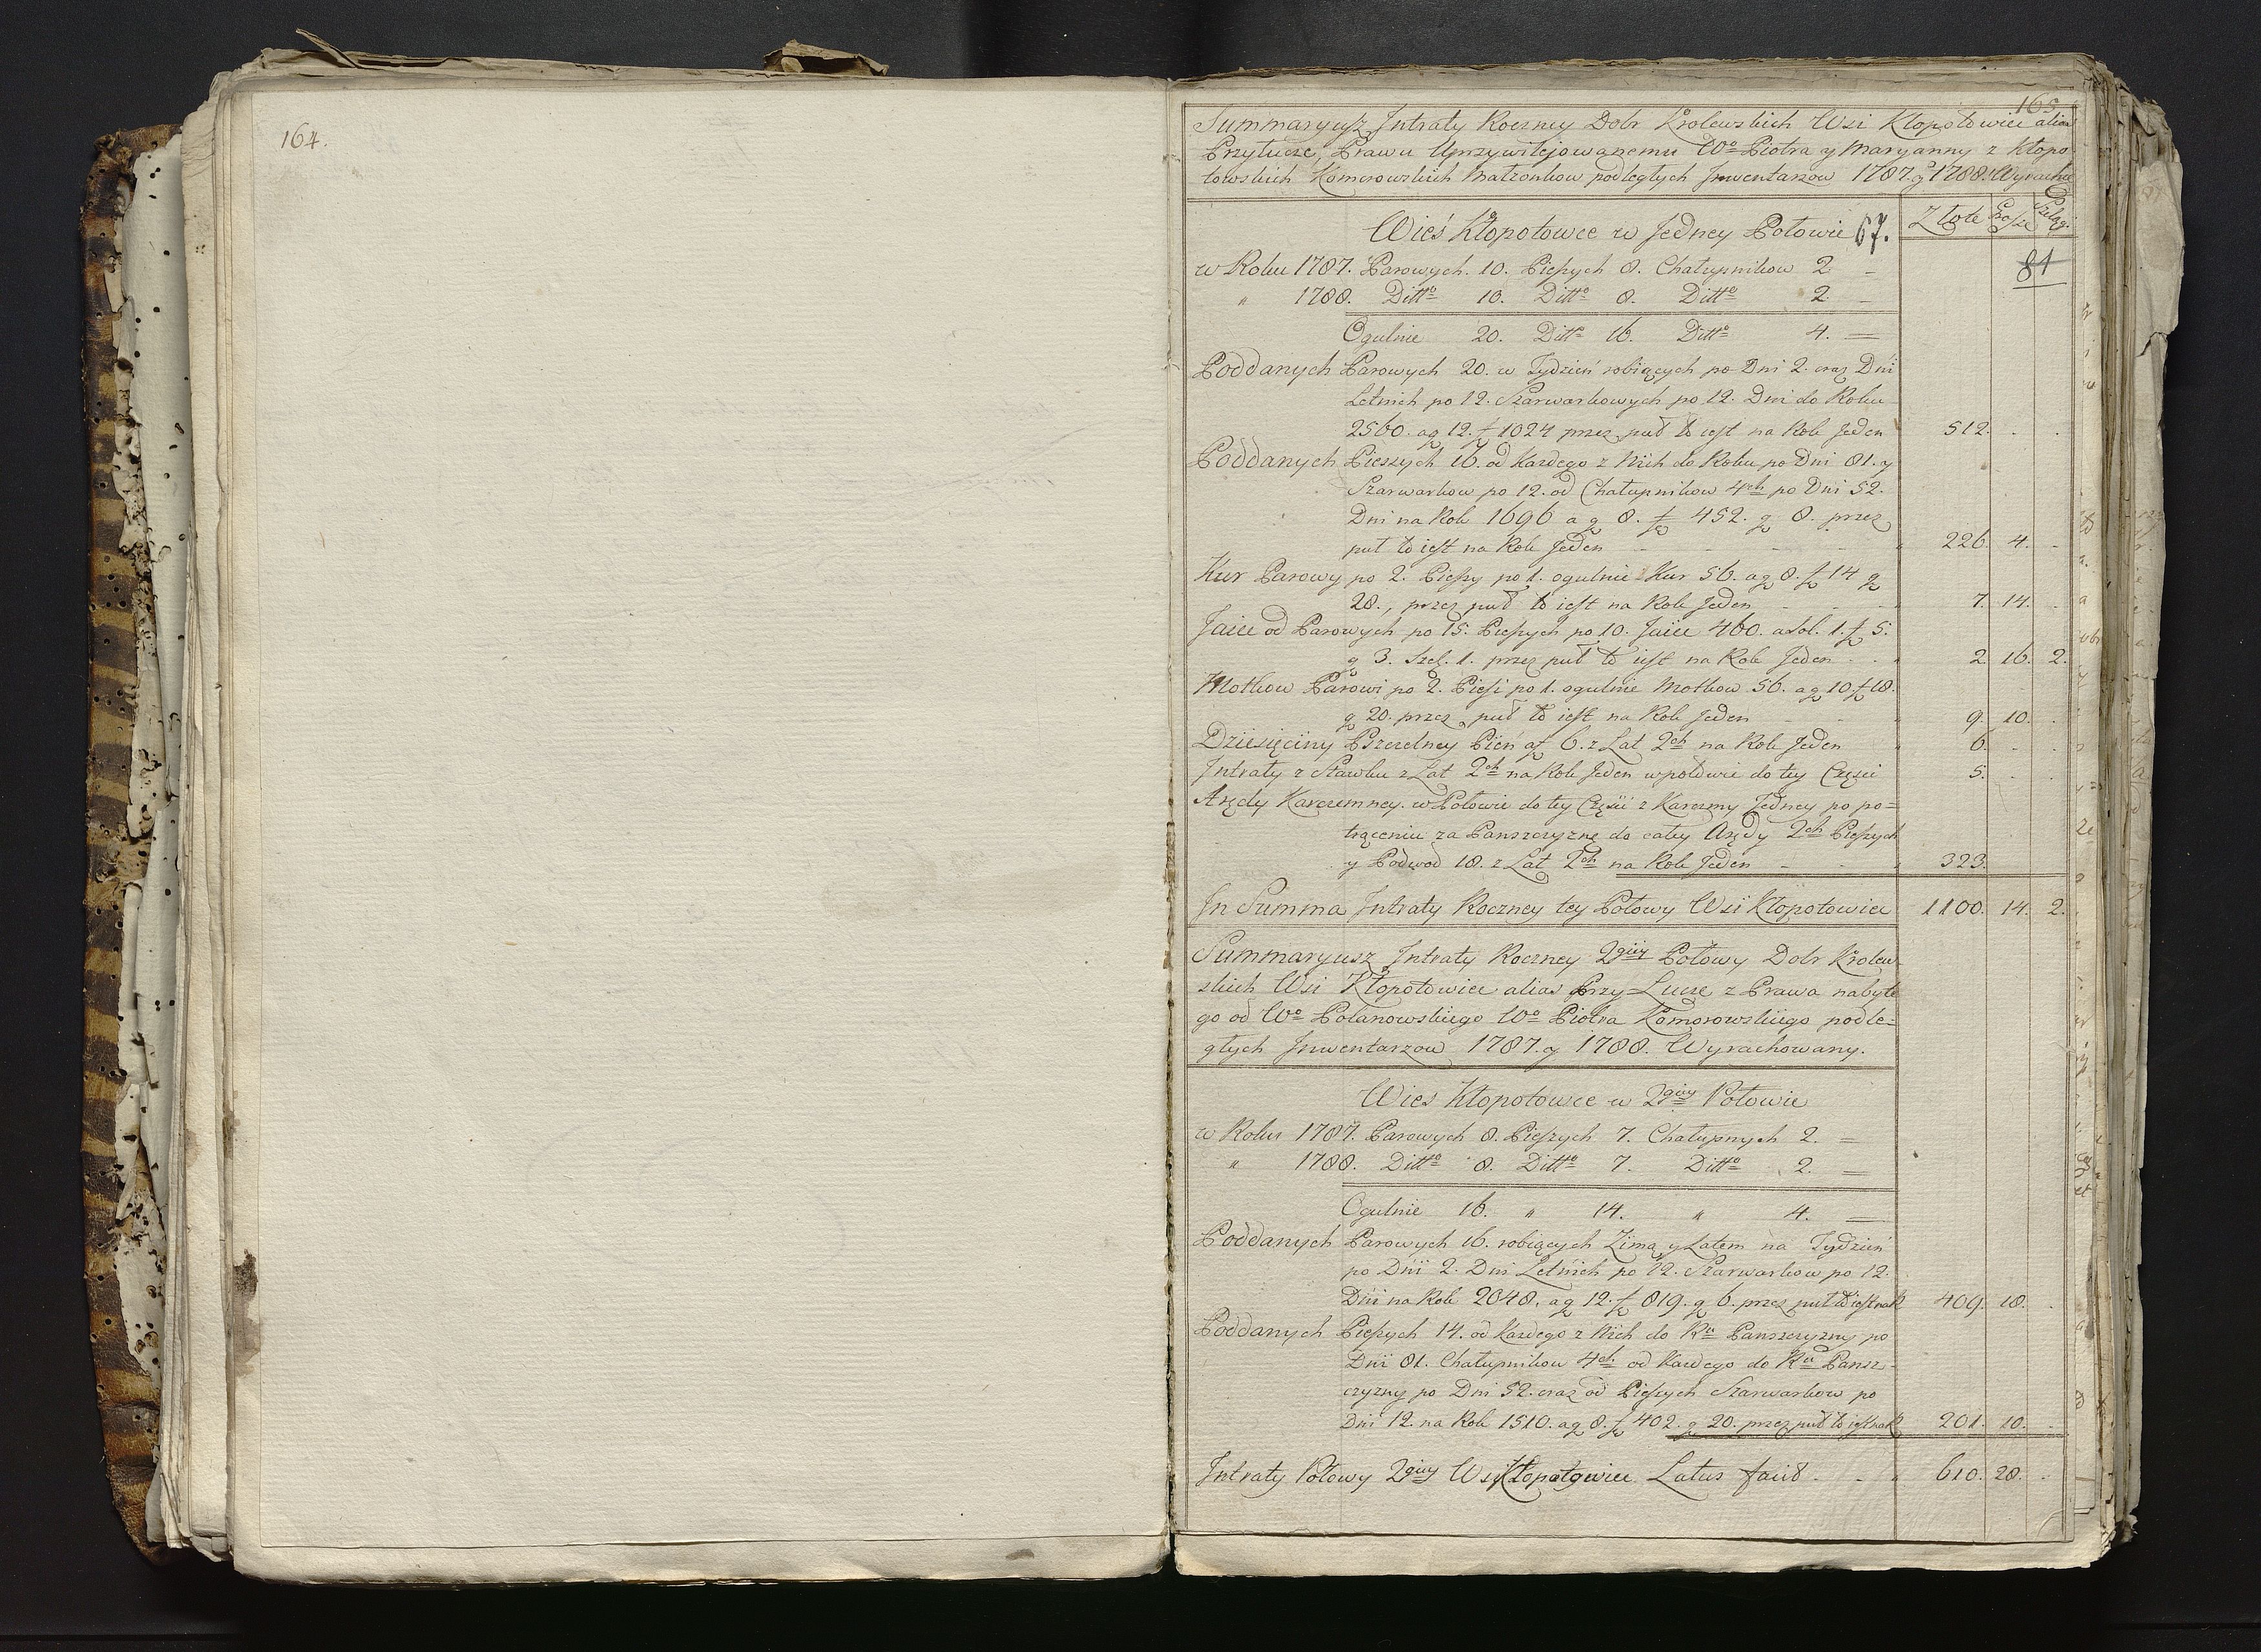 164.
165
Summaryusz Jntraty Roczney Dobr Krolewskich Wsi Kłopotowiec alias
Przyłucze, Prawu Uprzywilejowanemu Wo Piotra y Maryanny z Kłopo
towskich Komorowskich Małzonkow podległych Jnwentarzow 1787. y 1788. Wyrachu
Wieś Kłopotowce w Jedney Połowie 67.
Złote Gro/sze Szelągi.
w Roku 1787. Parowych. 10. Pieszych 8. Chałupnikow 2 -
81
" 1788. Ditto 10. Ditto 8. Ditto 2. -
Ogulnie 20. Ditto 16. Ditto 4. =
Poddanych Parowych 20. w Tydzień robiących po Dni 2. oraz Dni
Letnich po 12. Szarwarkowych po 12. Dni do Roku
2560. a g 12. f 1024 przez puł to iest na Rok Jeden 512. . .
Poddanych Pieszych 16. od Każdego z Nich do Roku po Dni 81. y
Szarwarkow po 12. od Chałupnikow 4ch po Dni 52.
Dni na Rok 1696 a g 8. f 452. g 8. przez
puł to iest na Rok Jeden - - - - " 226. 4. -
Kur Parowy po 2. Pieszy po 1. ogulnie Kur 56. a g 8. f 14 g
28., przez puł to iest na Rok Jeden - - " 7. 14. .
Jaiec od Parowych po 15. Pieszych po 10. Jaiec 460. a sol. 1. f 5.
g 3. Szel. 1. przez puł to iest na Rok Jeden . . " 2. 16. 2.
Motkow Parowi po 2. Piesi po 1. ogulnie Motkow 56. a g 10 f 18.
g 20. przez puł to iest na Rok Jeden - - " 9. 10. .
Dziesięciny Pszczelney Pień a f 6. z Lat 2ch na Rok Jeden " 6. . .
Jntraty z Stawku z Lat 2ch na Rok Jeden w połowie do tey Częsci 5. . .
Arędy Karczemney w Połowie do tey Częsci z Karczmy Jedney po po=
trąceniu za Panszczyznę do całey Arędy 2ch Pieszych
y Podwod 18. z Lat 2ch na Rok Jeden - - " 323.
Jn Summa Jntraty Roczney tey Połowy Wsi Kłopotowiec 1100. 14. 2.
Summaryusz Jntraty Roczney 2giey Połowy Dobr Krolew
skich Wsi Kłopotowiec alias Przy=Lucze z Prawa nabyte
go od Wo Polanowskiego Wo Piotra Komorowskiego podle=
głych Jnwentarzow 1787. y 1788. Wyrachowany.
Wies Kłopotowce w 2giey Połowie
w Roku 1787. Parowych 8. Pieszych 7. Chałupnych 2. =
" 1788. Ditto 8. Ditto 7. Ditto 2. =
Ogulnie 16. " 14. " 4. =
Poddanych Parowych 16. robiących Zimą y Latem na Tydzień
po Dni 2. Dni Letnich po 12. Szarwarkow po 12.
Dni na Rok 2048. a g 12. f 819. g 6. przez puł to iest na R 409. 18. .
Poddanych Pieszych 14. od Każdego z Nich do Ru Panszczyzny po
Dni 81. Chałupnikow 4ch od Każdego do Ru Pansz-
czyzny po Dni 52. oraz od Pieszych Szarwarkow po
Dni 12. na Rok 1510. a g 8. f 402. g 20. przez puł to iest na R 201. 10. .
Jntraty Połowy 2giey Wsi Kłopotowiec Latus facit . - " 610. 28. .